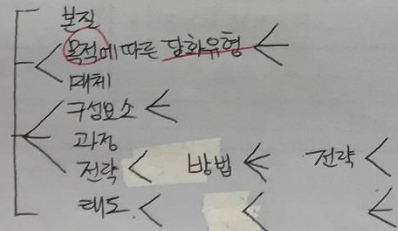 본질
목적에 따른 담화유형
매체
구성요소
과정
전략 방법 전략
태도